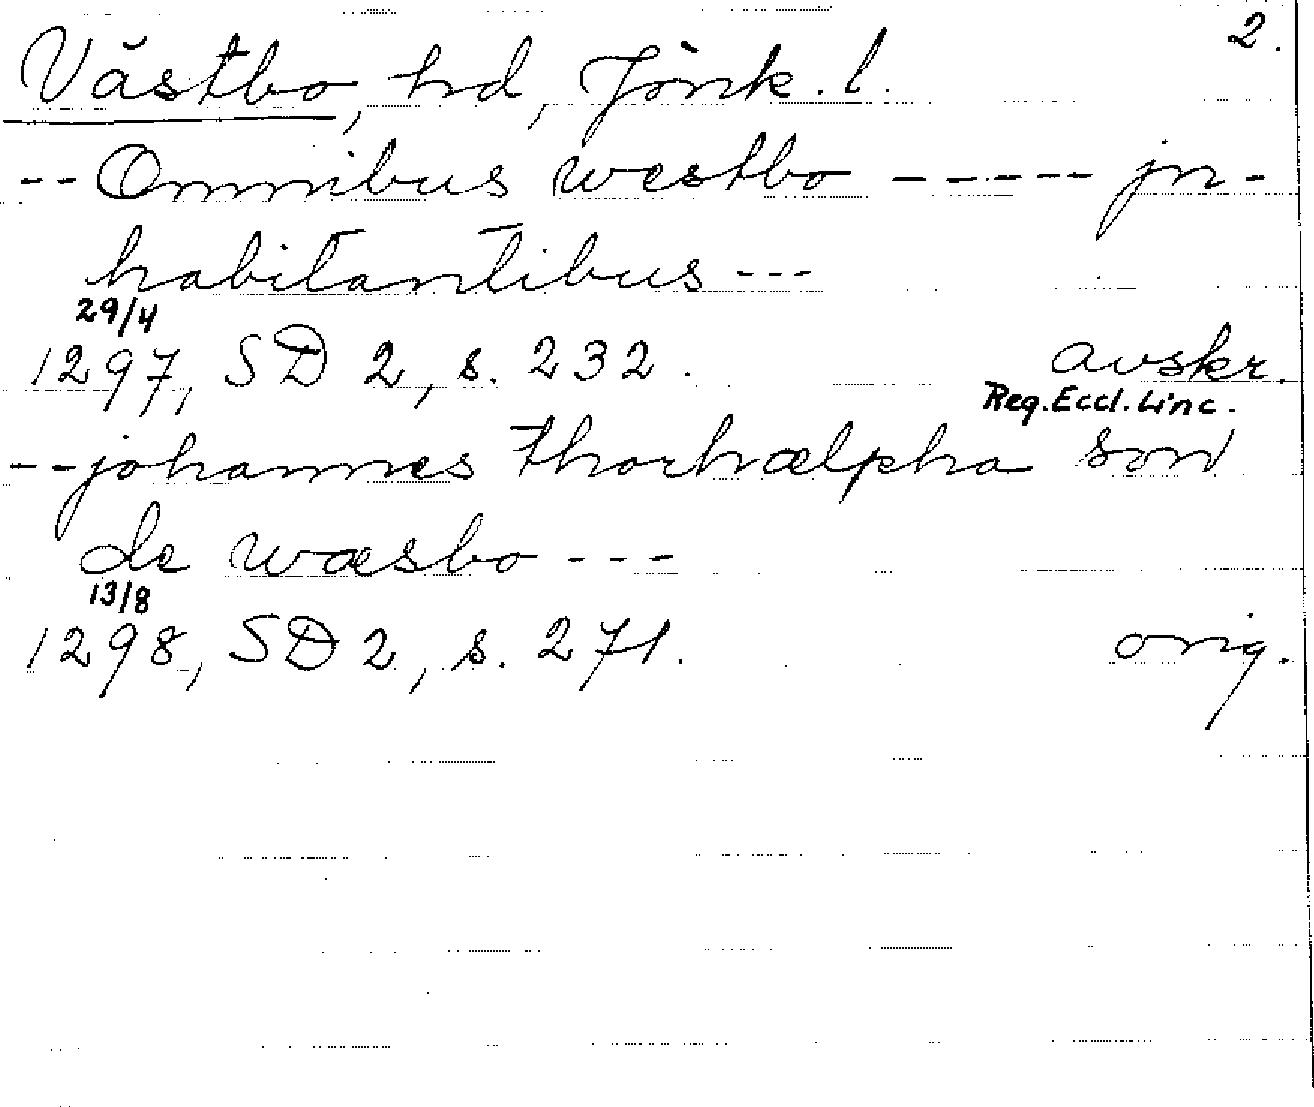 2.
Västbo, hd, Jönk. l.
-- Omnibus westbo ----- jn-
habitantibus ---
29/4
1297, SD 2, s. 232. avskr.
Reg. Eccl. Linc.
-- johannes thorhælpha son
de wæsbo ---
13/8
1298, SD 2, s. 271. orig.